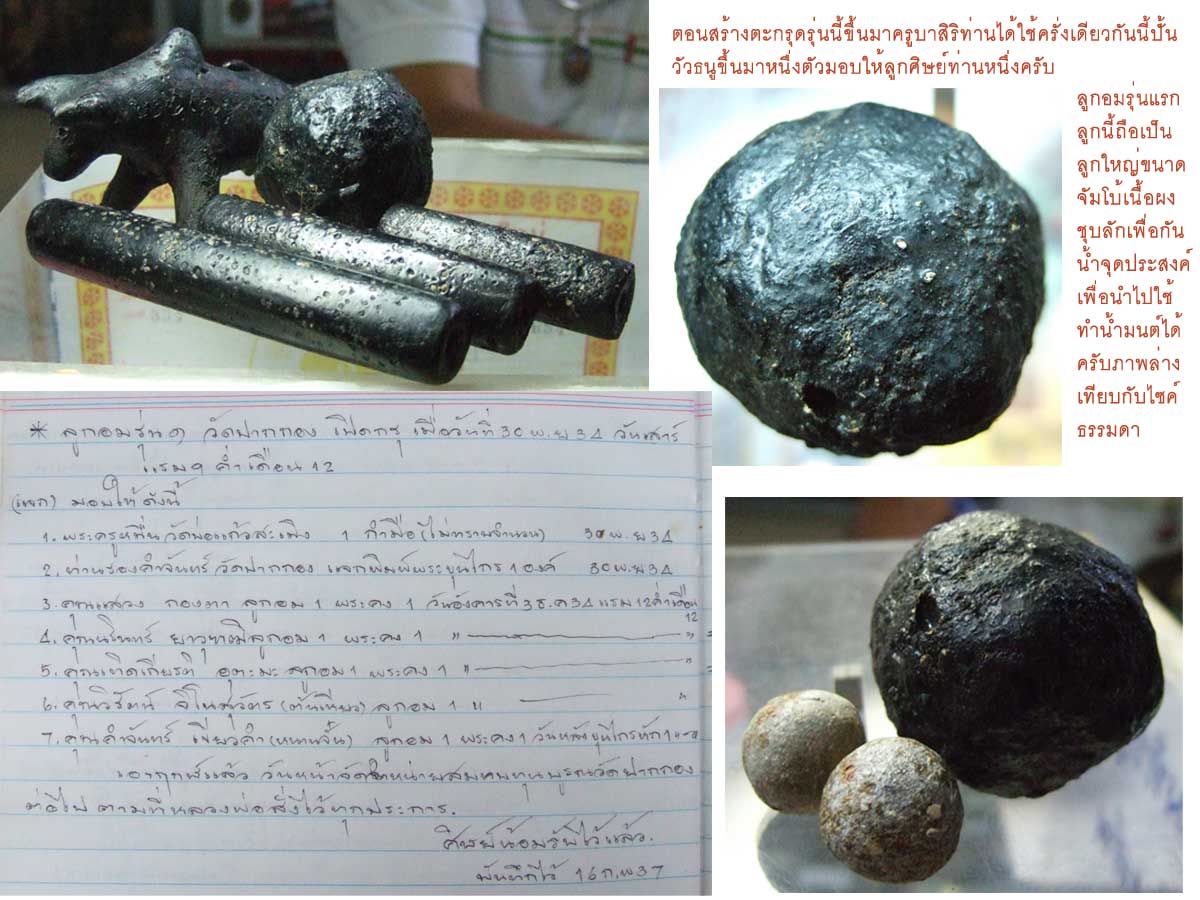 ตอนสร้างตะกรุดรุ่นนี้ขึ้นมาครูบาสิริท่านได้ใช้ครั่งเดียวกันนี้ปั้น
วัวธนูขึ้นมาหนึ่งตัวมอบให้ลูกศิษย์ท่านหนึ่งครับ
ลูกอมรุ่นแรก
ลูกนี้ถือเป็น
ลูกใหญ่ขนาด
จัมโบ้เนื้อผง
ชุบลักเพื่อกัน
น้ำจุดประสงค์
เพื่อนำไปใช้
ทำน้ำมนต์ได้
ครับภาพล่าง
เทียบกับไซค์
ธรรมดา
* ลูกอมรุ่น ๑ วัดปากกอง เปิดกรุ เมื่อวันที่ 30 พ.ย 34 วันเสาร์
แรม ๙ ค่ำ เดือน 12
(แจก) มอบให้ดังนี้
1. พระครูหมื่น วัดบ่อแก้วสะเมิง 1 กำมือ (ไม่ทราบจำนวน) 30 พ.ย 34
2. ท่านรองคำจันทร์ วัดปากกอง แจกพิมพ์พระขุนไกร 1 องค์ 30 พ.ย 34
3. คุณแสวง กองตา ลูกอม 1 พระคง 1 วันอังคารที่ 3 ธ.ค 34 แรม 12 ค่ำ เดือน
12
4. คุณนรินทร์ ลูกอม 1 พระคง 1 " "
5. คุณเทิดเกียรติ อุตะมะ ลูกอม 1 พระคง 1 " "
6. คุณวิรัตน์ (ต้นเหียว) ลูกอม 1 " "
7. คุณคำจันทร์ เขียวคำ (หนานจั๋น) ลูกอม 1 พระคง 1 วันหลังขุนไกรหัก 1
เอาฤกษ์แล้ว วันหน้าจัดจำหน่ายสมทบทุนบูรณวัดปากกอง
ต่อไป ตามที่หลวงพ่อสั่งไว้ทุกประการ.
ศิษย์น้อมรับไว้แล้ว.
บันทึกไว้ 16 ก.พ 37